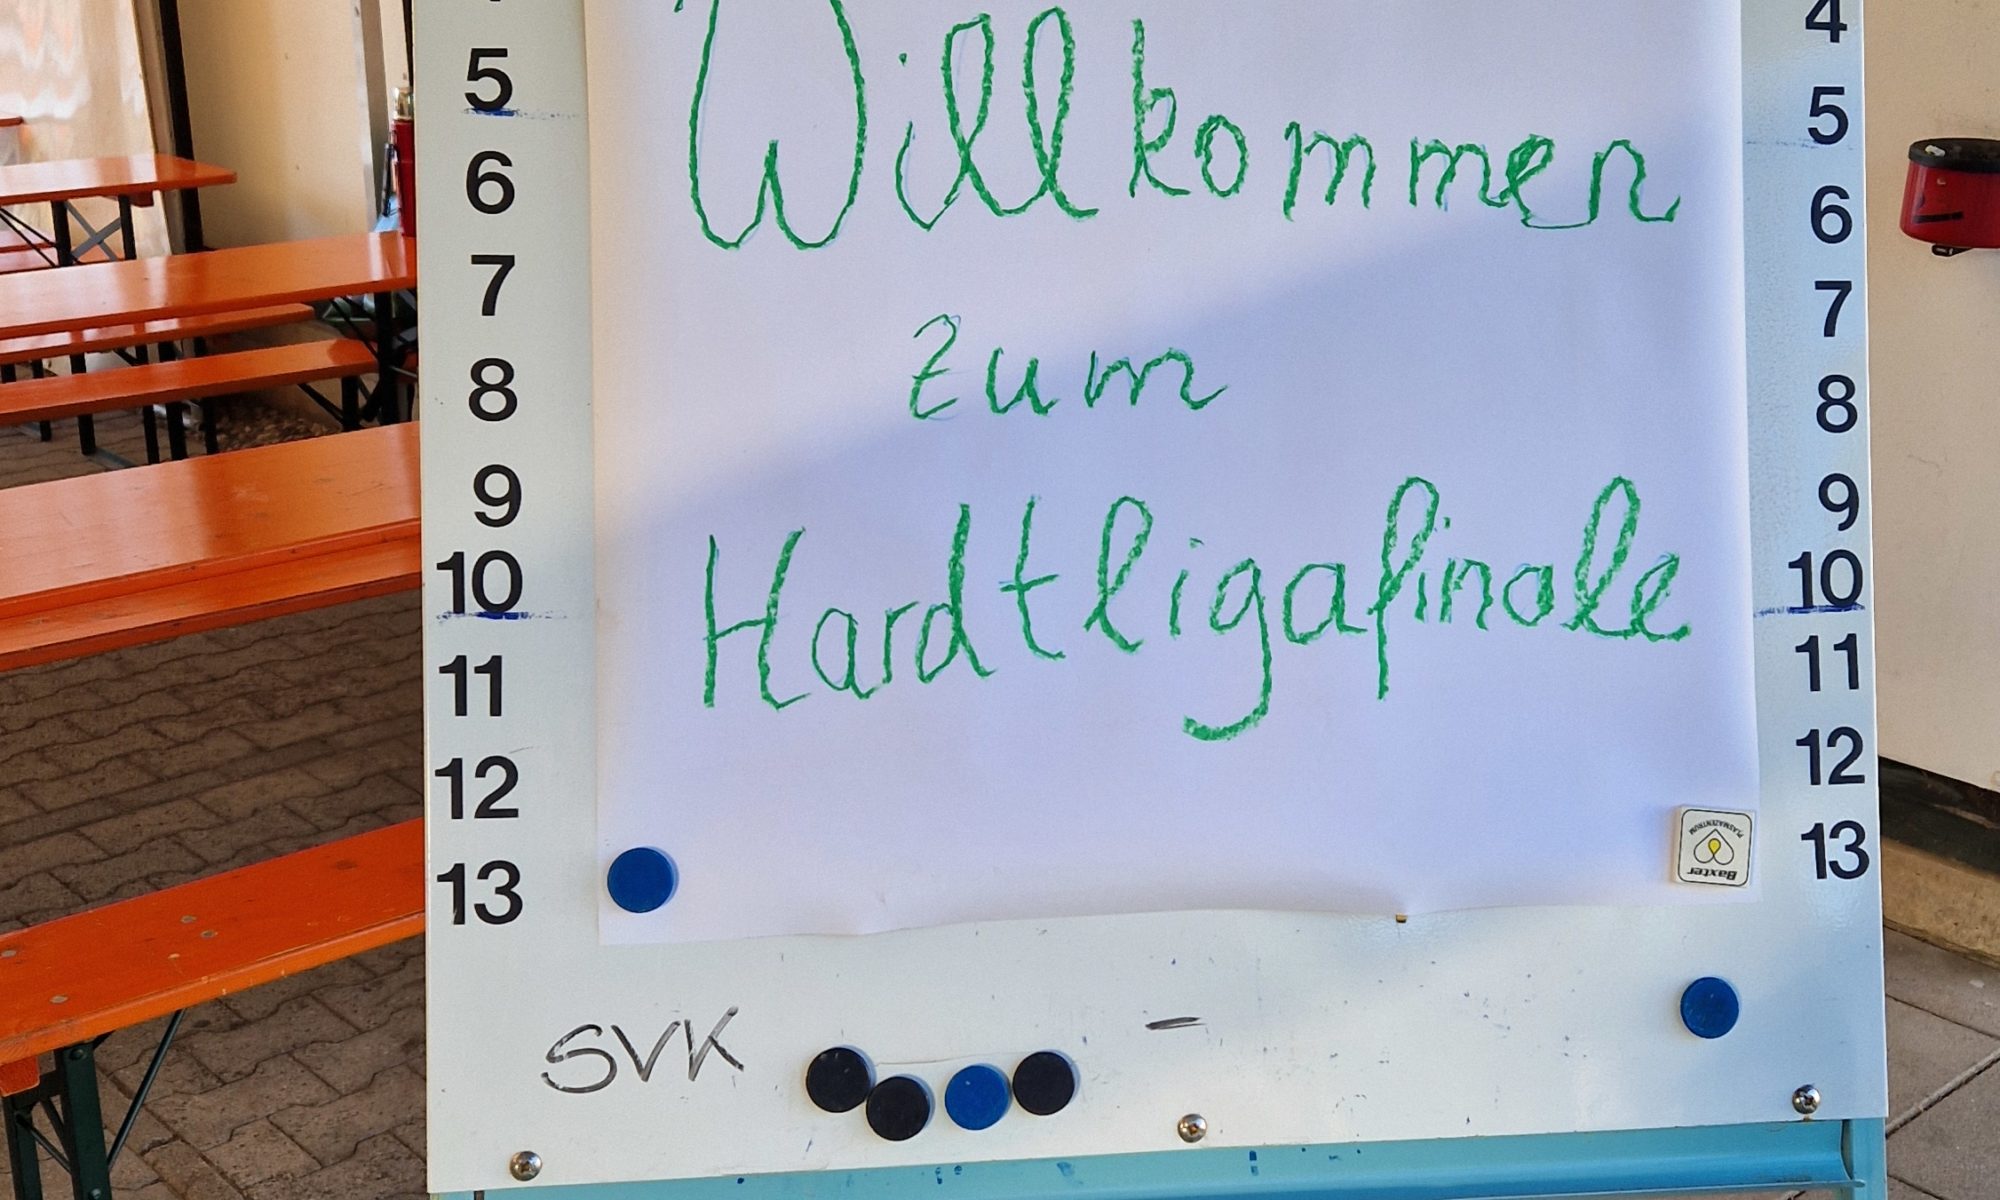 Willkommen
zum
Hardtligafinale
5
6
7
8
9
10
11
12
13
4
5
6
7
8
9
10
11
12
13
Baxter
PLASMAZENTRUM
SVK -